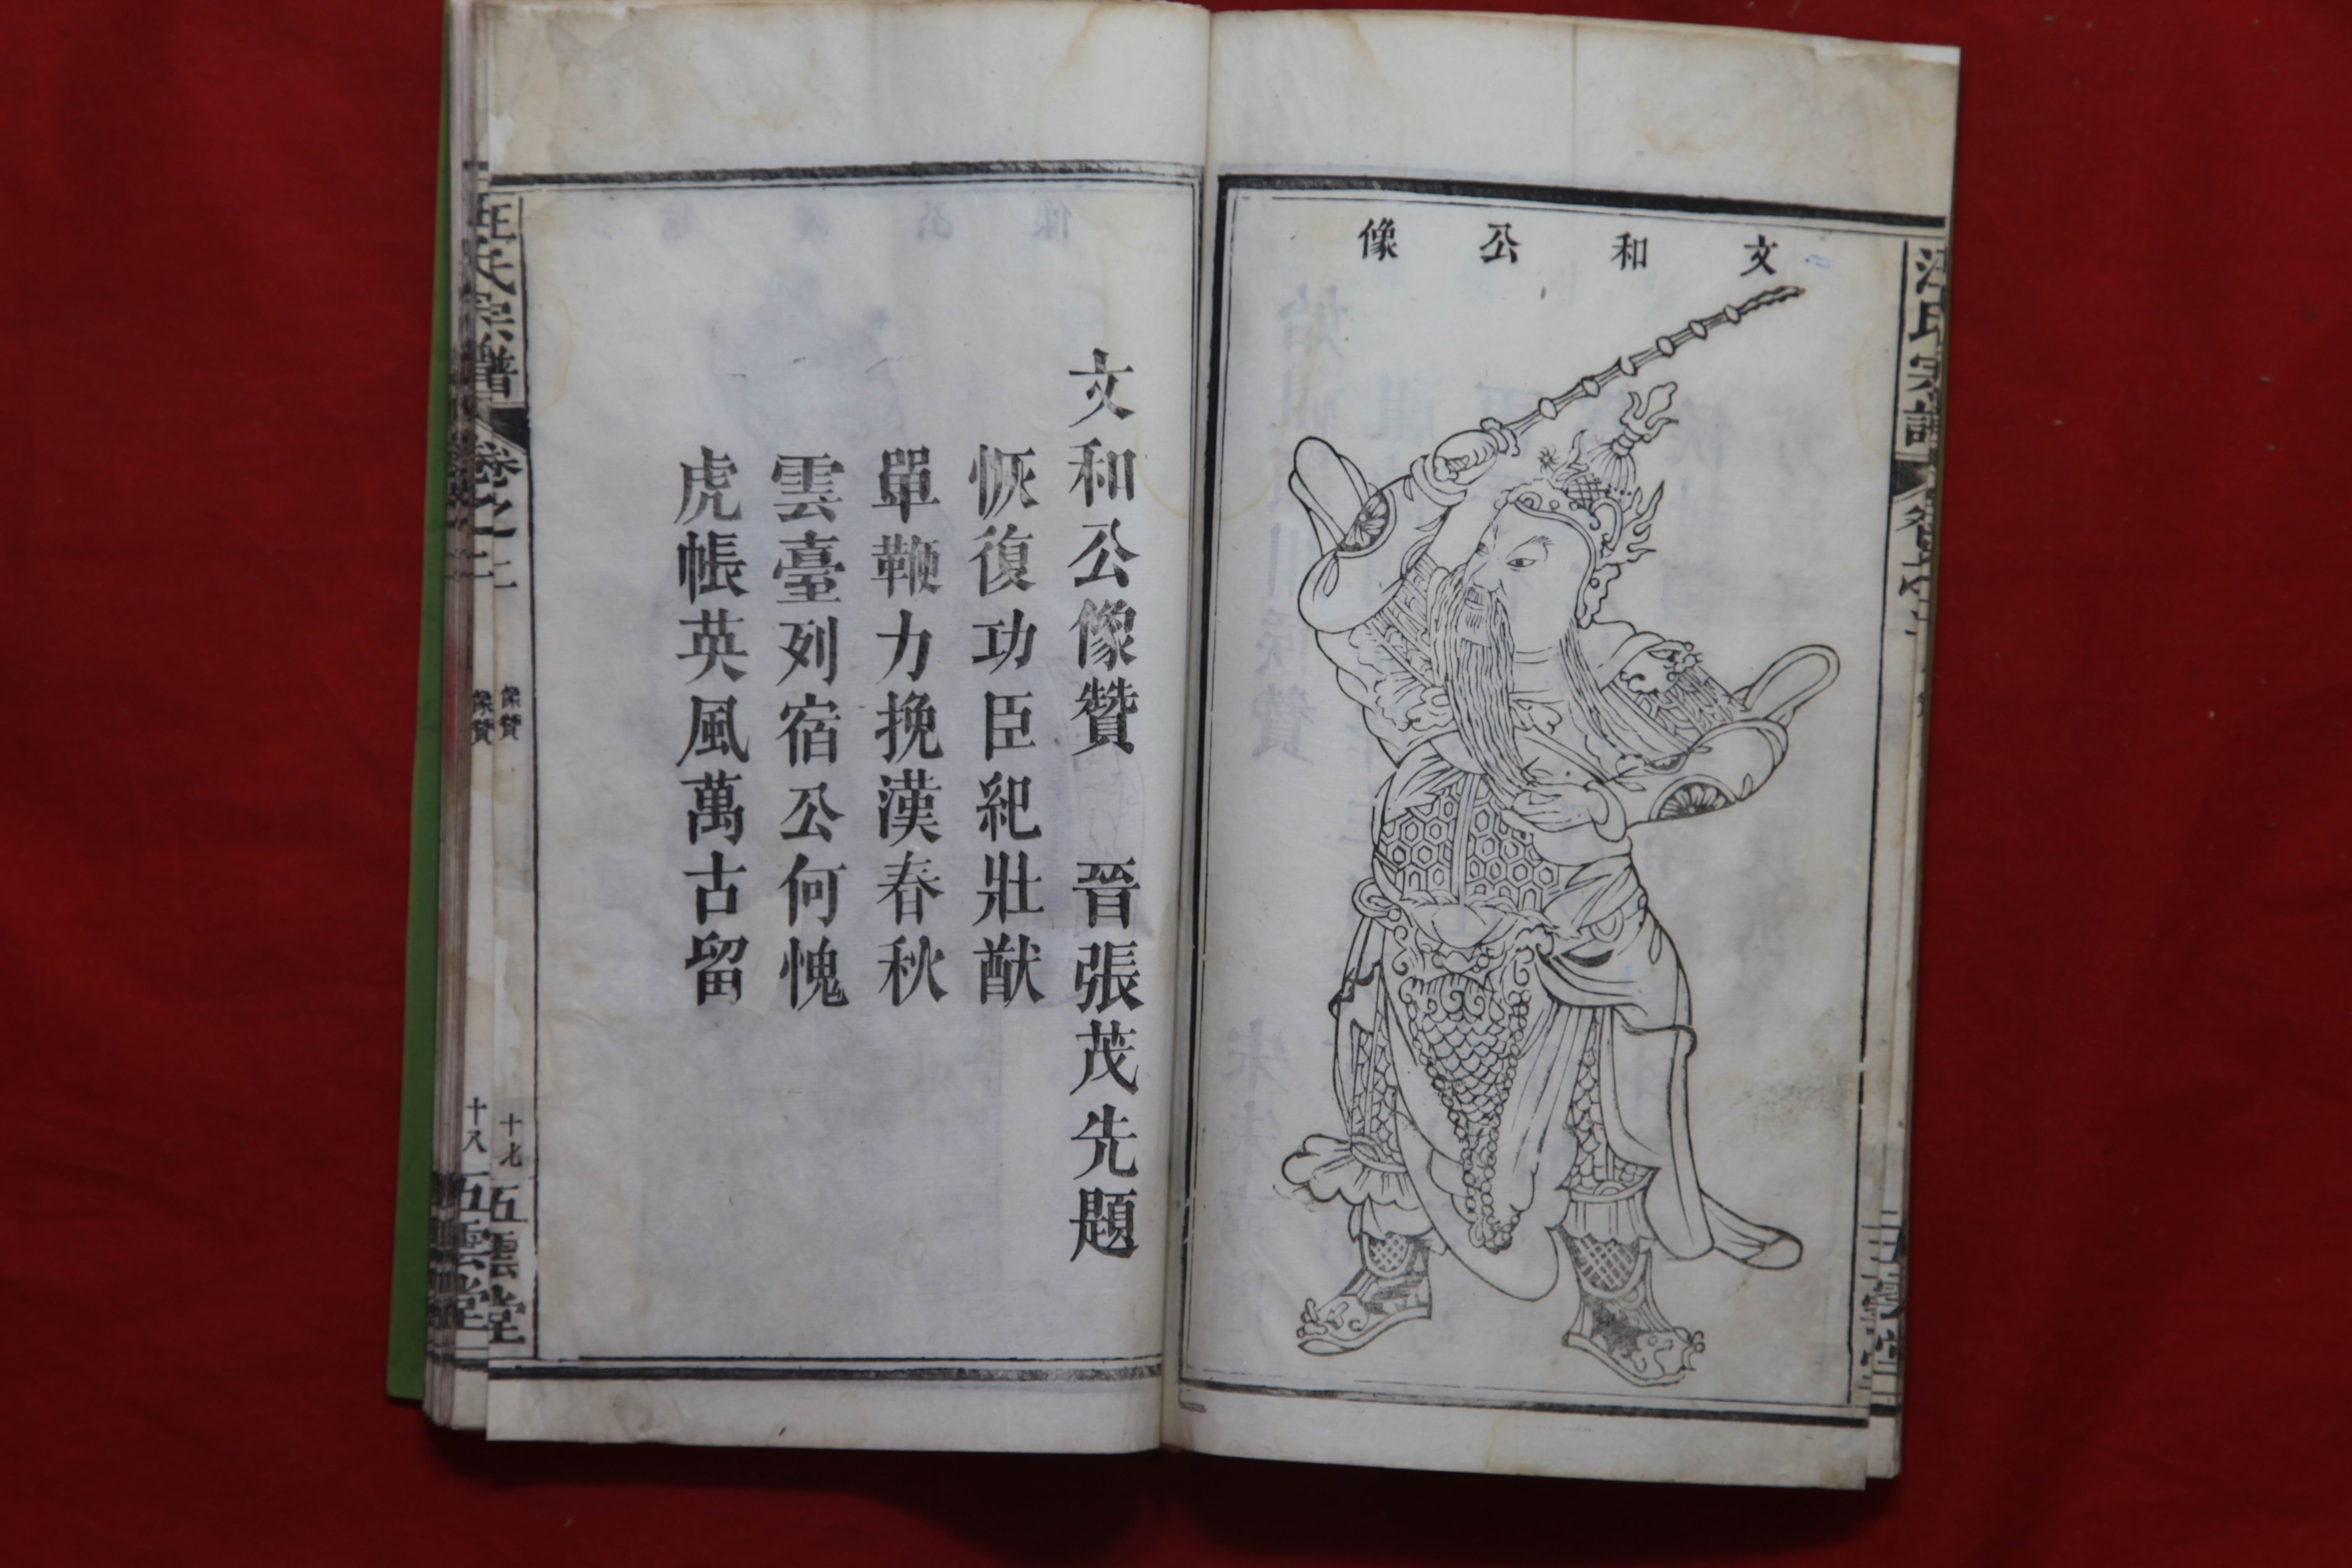 文和公像
汪氏宗譜
文和公像贊 晉張茂先題
恢復功臣紀壯猷
單鞭力挽漢春秋
雲臺列宿公何愧
虎帳英風萬古留
汪氏宗譜
卷之二
像贊
十九
五雲堂
像贊
十八
五雲堂